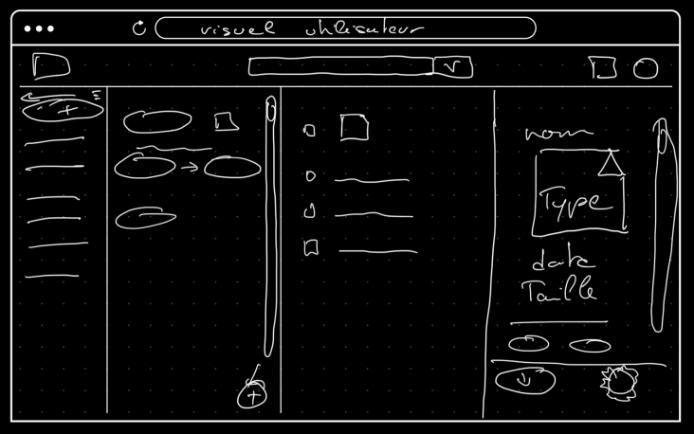 visuel utilisateur
nom
Type
date
Taille